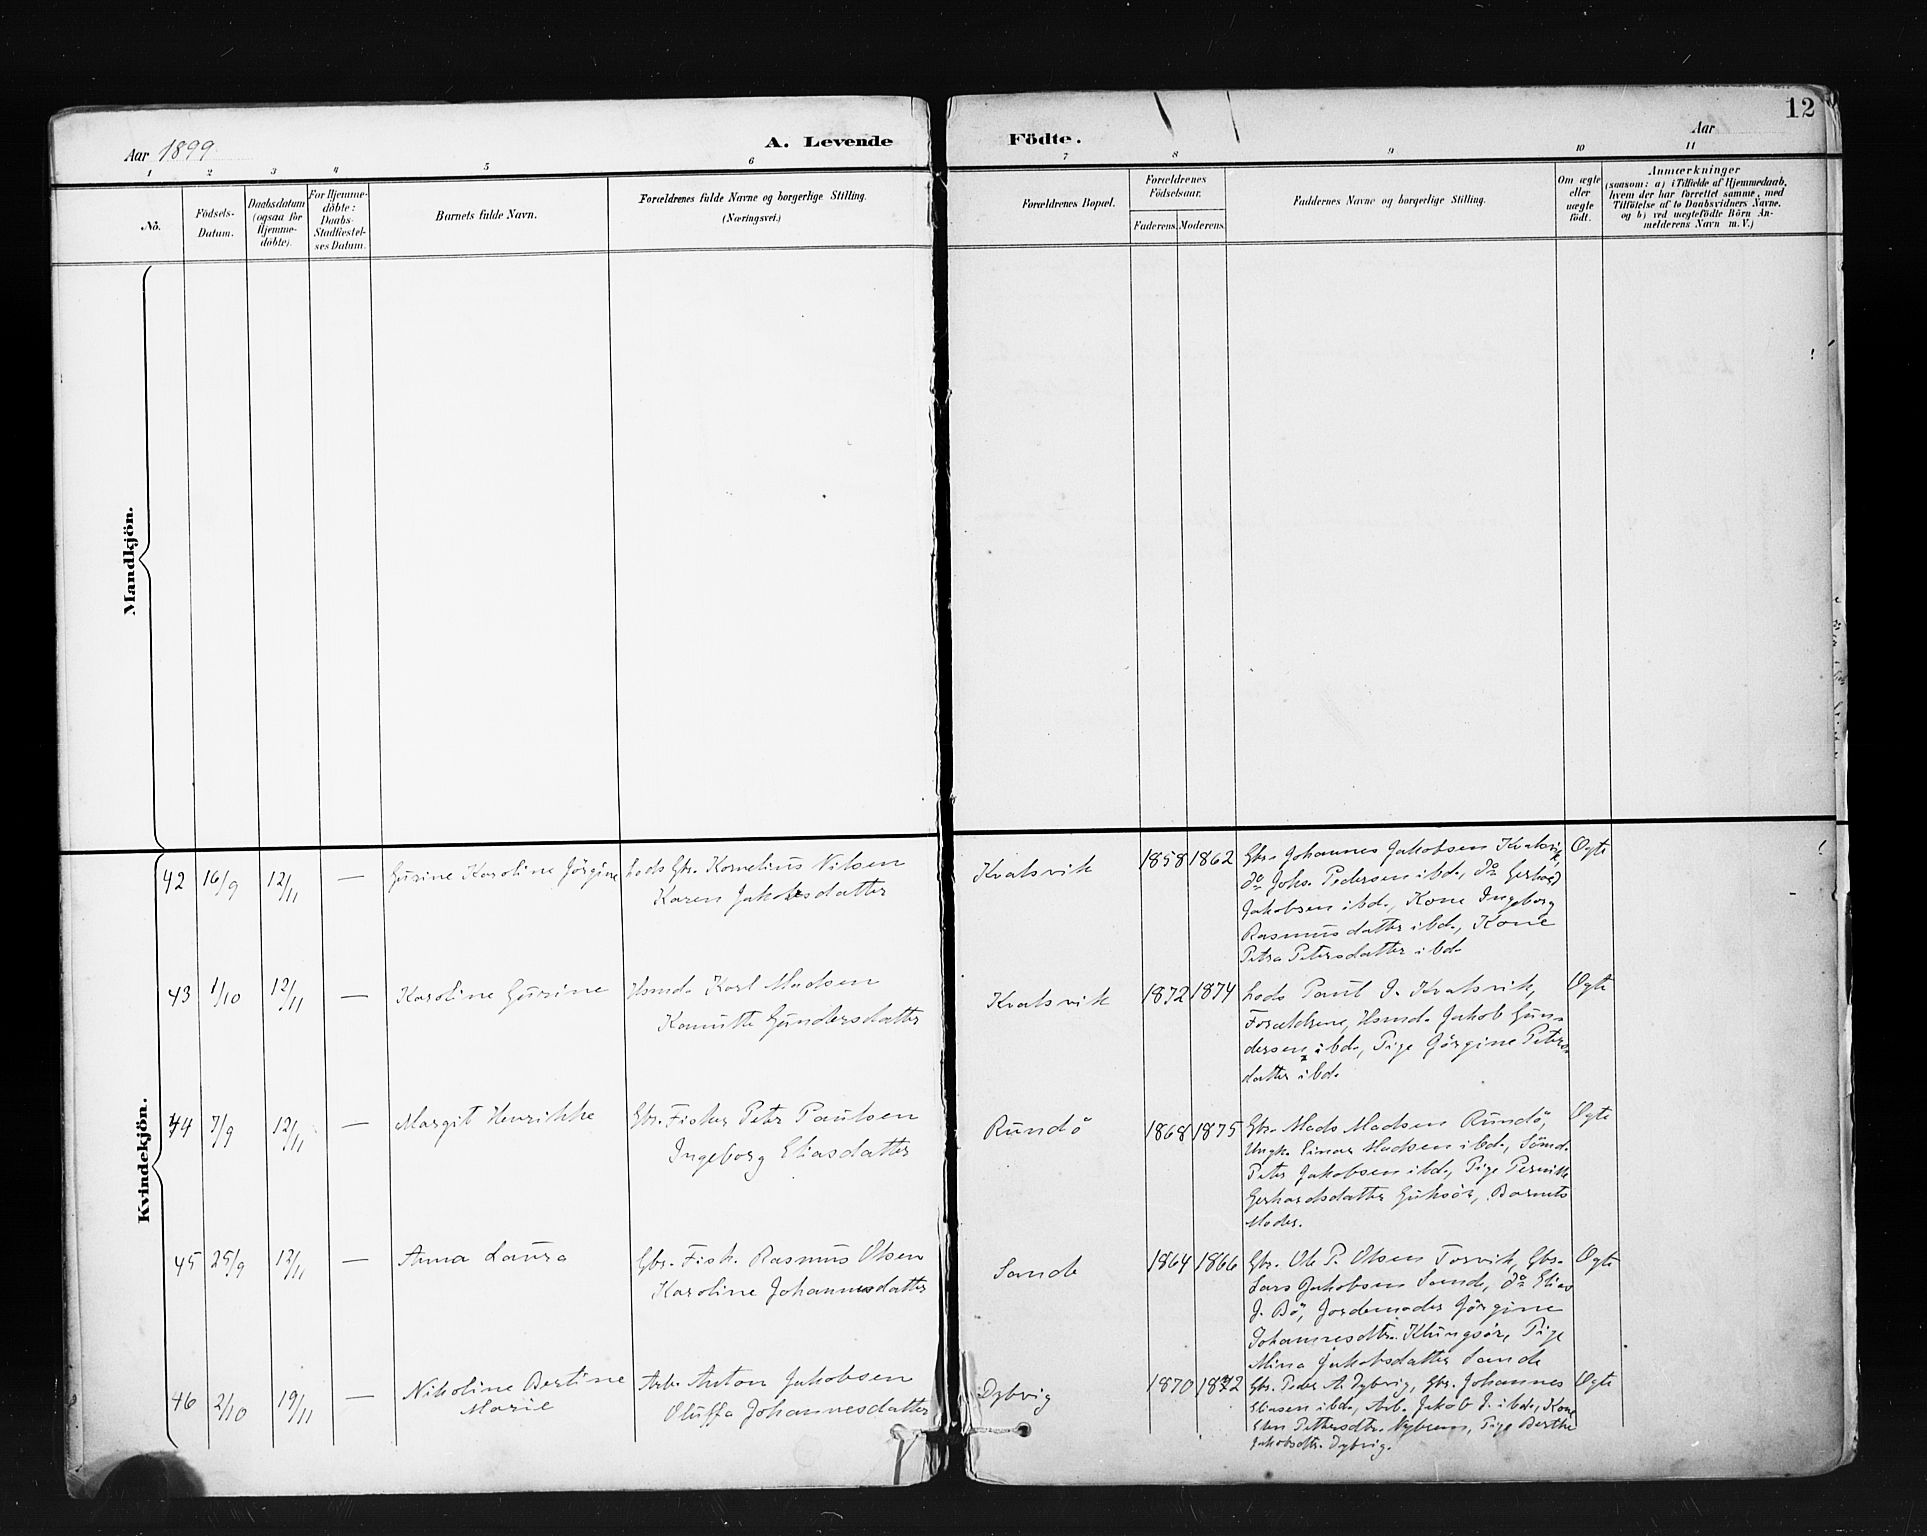 12
Aar 1899
A. Levende Födte.
Aar
1 2 3 4 5 6 7 8 9 10 11
No.
Födsels-Datum.
Daabsdatum (ogsaa for Hjemme-döbte).
For Hjemme-döbte: Daabs-Stadfæstel-ses Datum.
Barnets fulde Navn.
Forældrenes fulde Navne og borgerlige Stilling.
(Næringsvei.)
Forældrenes Bopæl.
Forældrenes Födselsaar.
Faderens. Moderens.
Faddernes Navne og borgerlige Stilling.
Om ægte eller uægte födt.
Anmærkninger
(saasom: a) i Tilfælde af Hjemmedaab,
hvem der har forrettet samme, med
Tilföielse af to Daabsvidners Navne,
og b) ved uægtefödte Börn An-
melderens Navn m. V.)
Mandkjön.
Kvindekjön.
42 16/9 12/11 — Gurine Karoline Jörgine Lods Gbr. Kornelius Nilsen
Karen Jakobsdatter
Kvalsvik 1858 1862 Gbr. Johannes Jakobsen Kvalsvik,
do Johs. Pedersen ibd., do Gerhard
Jakobsen ibd., Kone Ingeborg
Rasmusdatter ibd., Kone
Petra Petersdatter ibd.
Ægte
43 1/10 12/11 — Karoline Gurine Husmd. Karl Madsen
Kanutte Gundersdatter
Kvalsvik 1872 1874 Lods Paul J. Kvalsvik,
Forældrene, Husmd. Jakob Gun-
dersen ibd., Pige Jörgine Peters
datter ibd.
Ægte
44 7/9 12/11 — Margit Henrikke Gbr. Fisker Peter Paulsen
Ingeborg Eliasdatter
Rundö 1868 1875 Gbr. Mads Madsen Rundö,
Ungk. Einar Madsen ibd.,
Peter Jakobsen ibd., Pige Pernille
Gerhardsdatter Barnets
Moder.
Ægte
45 25/9 12/11 — Anna Laura Gbr. Fisk. Rasmus Olsen
Karoline Johannesdatter
Sande 1864 1866 Gbr. Ole P. Olsen Torvik, Gbr.
Lars Jakobsen Sande, do Elias
J. Bö, Jordemoder Jörgine
Johannesdtr. Klungsör, Pige
Mina Jakobsdatter Sande
Ægte
46 2/10 19/11 — Nikoline Bertine
Marie
Arb. Anton Jakobsen
Oluffa Johannesdatter
Dybvig 1870 1872 Gbr. Peder A. Dybvig, Gbr. Johannes
Eliasen ibd., Arb. Jakob J. ibd., Kone
Elen Pettersdtr. Pige Berthe
Jakobsdtr. Dybvig.
Ægte